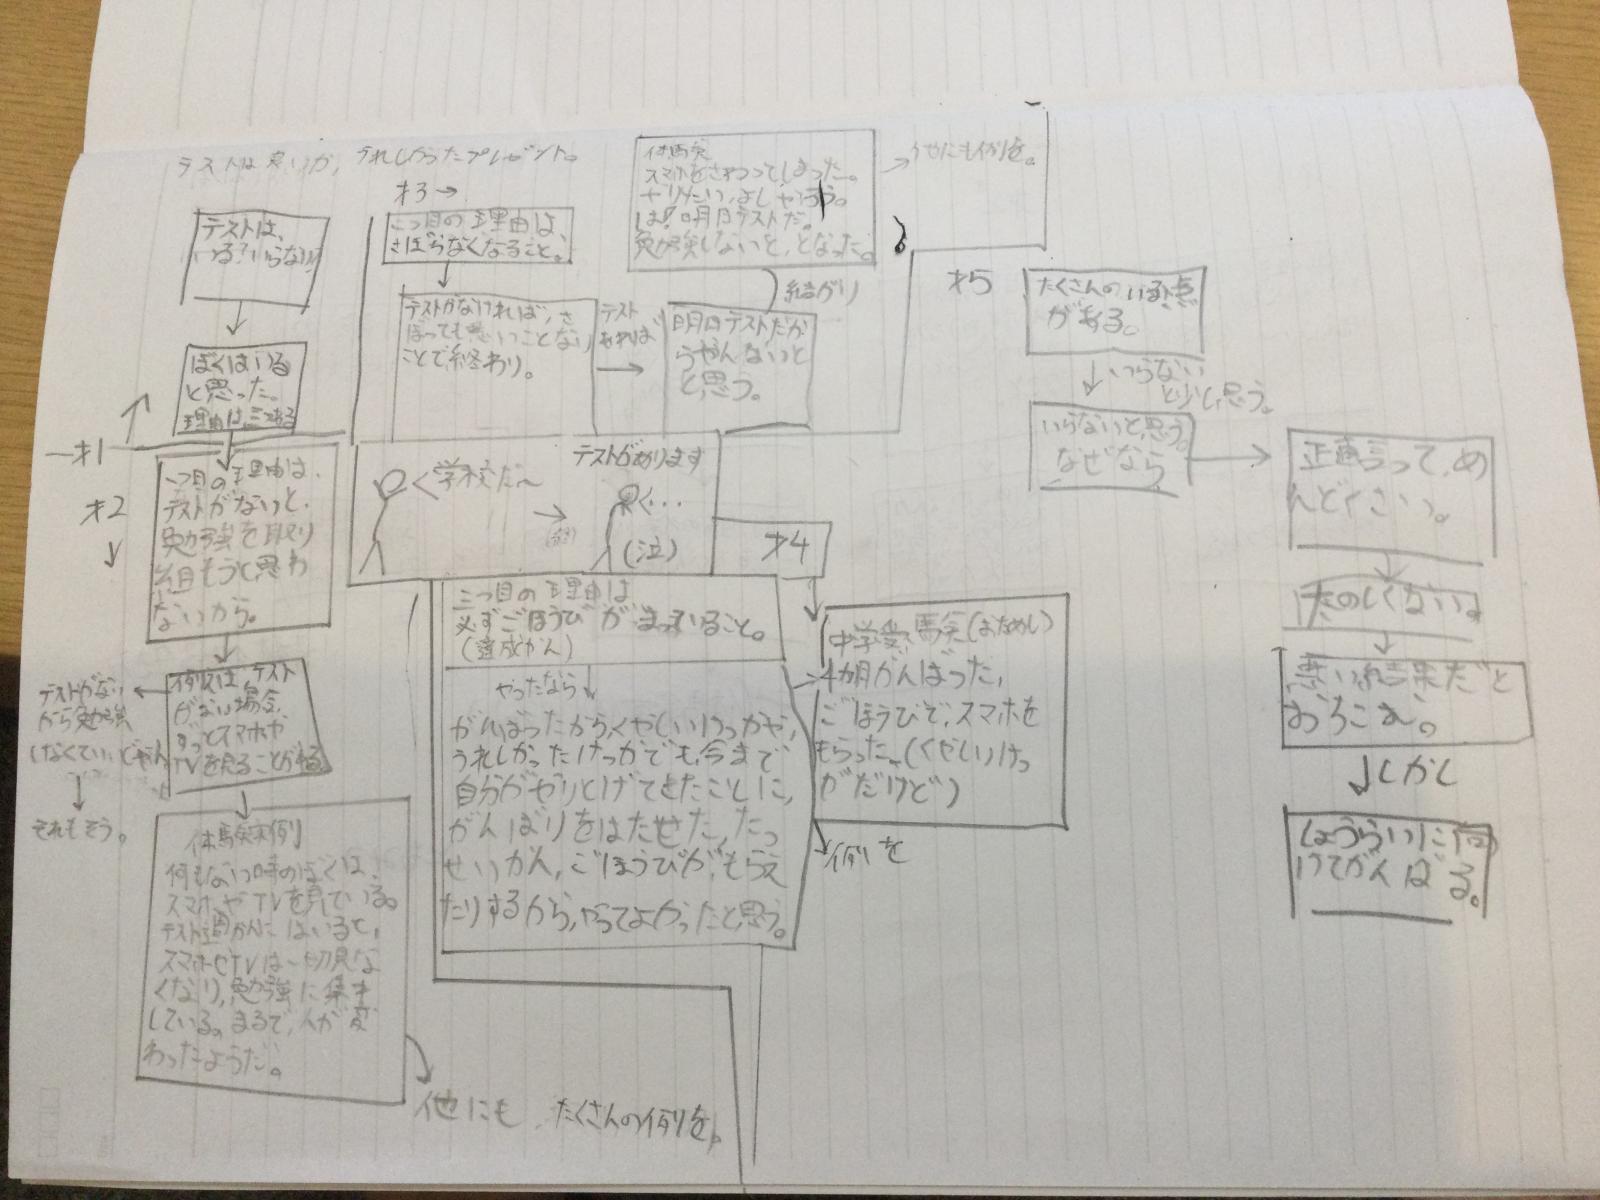 テストは悪いが、うれしかったプレゼント。
テストは、
いる?いらない?
ぼくはいる
と思った。
理由は三つある
オ1
オ2
一つ目の理由は、
テストがないと、
勉強を取り
組もうと思わ
ないから。
例えば、テスト
がない場合、
ずっとスマホや
TVを見ることがある
テストがない
から勉強
しなくていいじゃん
それもそう。
体験実例
何もない時のぼくは、
スマホやTVを見ている。
テスト週かんにはいると、
スマホやTVは一切見な
くなり、勉強に集中
している。まるで、人が変
わったようだ。
他にも たくさんの例を。
オ3
二つ目の理由は、
さぼらなくなること。
テストがなければ、さ
ぼっても悪いことない
ことで終わり。
テスト
あれば
明日テストだか
らやんないと
と思う。
結がり
体験
スマホをさわってしまった。
やりたい、よしやろう。
は!明日テストだ。
勉強しないと、となった。
他にも例を。
学校だ〜
テストがあります
(泣)
オ4
三つ目の理由は
必ずごほうびがまっていること。
(達成かん)
やったなら
がんばったからくやしいけっかや、
うれしかったけっかでも、今まで
自分がやりとげてきたことに、
がんばりをはたせた、たっ
せいかん、ごほうびがもらえ
たりするから、やってよかったと思う。
中学受験(おためし)
4か月がんばった、
ごほうびで、スマホを
もらった。(くやしいけっ
かだけど)
例を
オ5
たくさんのいる点
がある。
いらない
と少し思う。
いらないと思う。
なぜなら
正直言って、め
んどくさい。
たのしくない。
悪い結果だと
おちこむ。
しかし
しょうらいに向
けてがんばる。